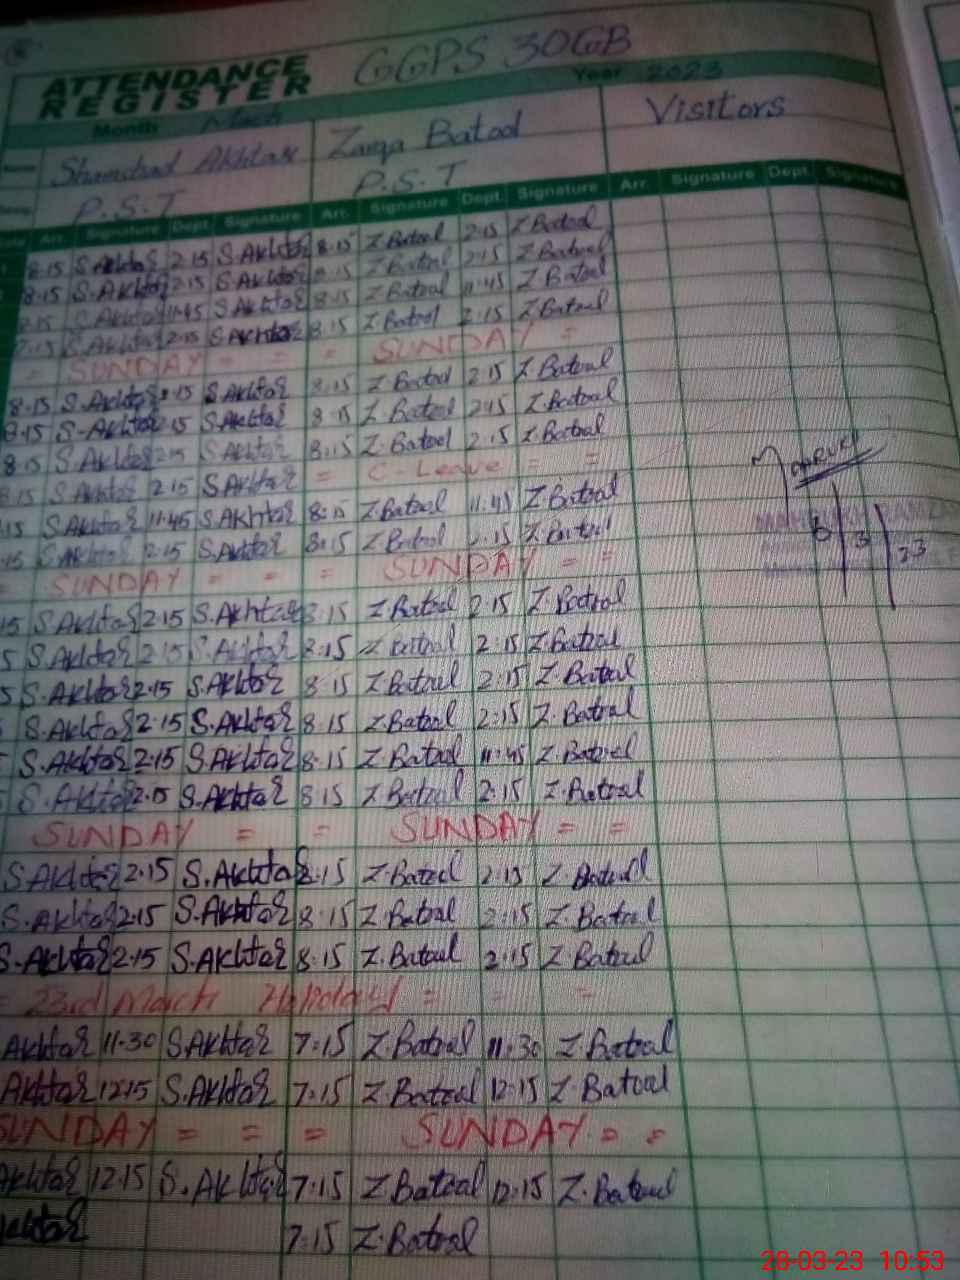 GGPS 30GB
ATTENDANCE
REGISTER
Year 2023
Month Mach
Shamshad Akhtar Zarqa Batool Visitors
P.S.T P.S.T
Arr. Signature Dept. Signature Arr. Signature Dept. Signature Arr. Signature Dept. Signature
8.15 S.Akhtar 2.15 S.Akhtar 8.15 Z.Batool 2.15 Z.Batool
8.15 S.Akhtar 2.15 S.Akhtar 8.15 Z.Batool 2.15 Z.Batool
S.Akhtar 11.45 S.Akhtar 8.15 Z.Batool 11.45 Z.Batool
S.Akhtar 2.15 S.Akhtar 8.15 Z.Batool 2.15 Z.Batool
= SUNDAY = = = SUNDAY =
8.15 S.Akhtar 2.15 S.Akhtar 8.15 Z.Batool 2.15 Z.Batool
8.15 S.Akhtar 2.15 S.Akhtar 8.15 Z.Batool 2.15 Z.Batool
8.15 S.Akhtar 2.15 S.Akhtar 8.15 Z.Batool 2.15 Z.Batool
8.15 S.Akhtar 2.15 S.Akhtar = C-Leave = =
.15 S.Akhtar 11.45 S.Akhtar 8.15 Z.Batool 11.45 Z.Batool
.15 S.Akhtar 2.15 S.Akhtar 8.15 Z.Batool 2.15 Z.Batool
= SUNDAY = = = SUNDAY = =
15 S.Akhtar 2.15 S.Akhtar 8.15 Z.Batool 2.15 Z.Batool
5 S.Akhtar 2.15 S.Akhtar 8.15 Z.Batool 2.15 Z.Batool
5 S.Akhtar 2.15 S.Akhtar 8.15 Z.Batool 2.15 Z.Batool
S.Akhtar 2.15 S.Akhtar 8.15 Z.Batool 2.15 Z.Batool
S.Akhtar 2.15 S.Akhtar 8.15 Z.Batool 11.45 Z.Batool
S.Akhtar 2.15 S.Akhtar 8.15 Z.Batool 2.15 Z.Batool
SUNDAY = = SUNDAY = =
S.Akhtar 2.15 S.Akhtar 8.15 Z.Batool 2.15 Z.Batool
S.Akhtar 2.15 S.Akhtar 8.15 Z.Batool 2.15 Z.Batool
S.Akhtar 2.15 S.Akhtar 8.15 Z.Batool 2.15 Z.Batool
= 23rd Mach Holiday = = =
Akhtar 11.30 S.Akhtar 7.15 Z.Batool 11.30 Z.Batool
Akhtar 12.15 S.Akhtar 7.15 Z.Batool 12.15 Z.Batool
SUNDAY = = = SUNDAY = =
Akhtar 12.15 S.Akhtar 7.15 Z.Batool 12.15 Z.Batool
khtar 7.15 Z.Batool
28-03-23 10:53